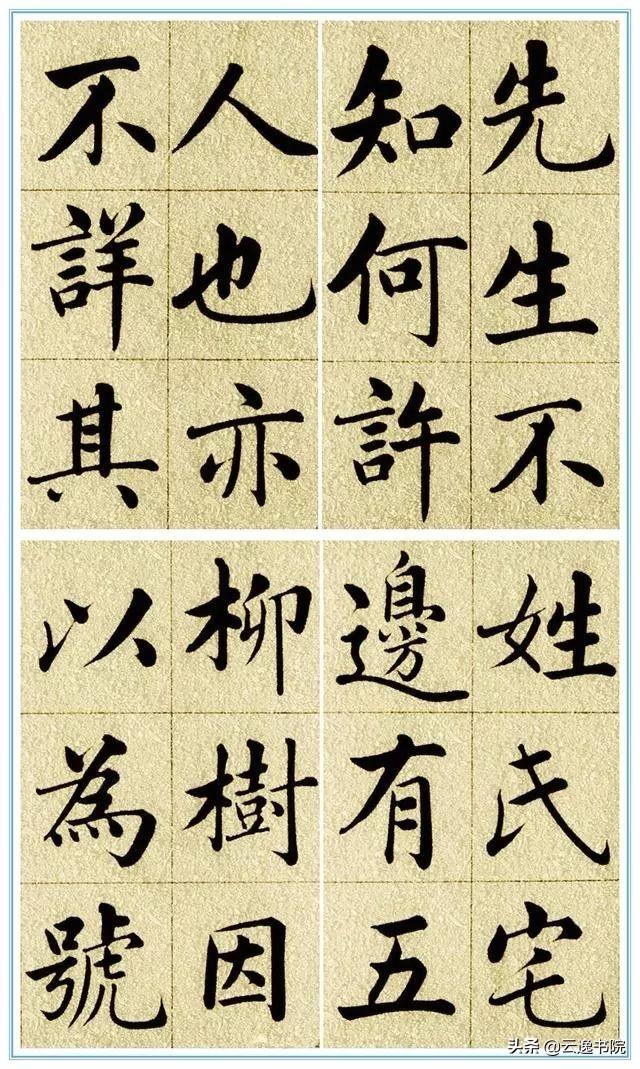 先生不
知何許
人也亦
不詳其
姓氏宅
邊有五
柳樹因
以為號
头条 @云逸书院